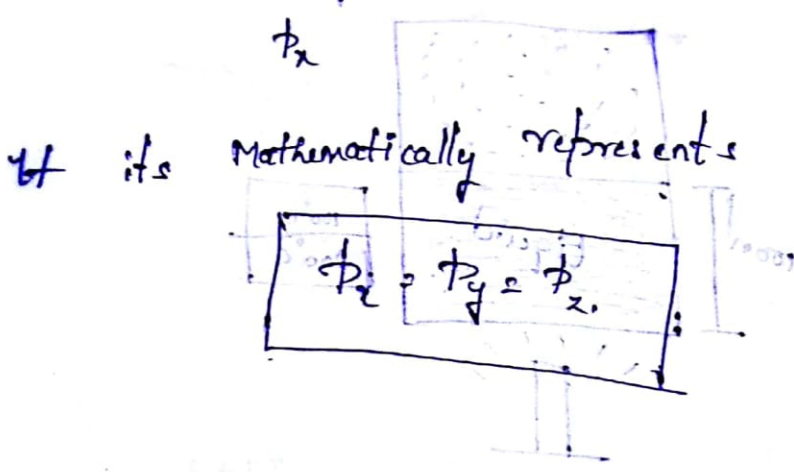 Px
its Mathematically represents
Px = Py = Pz.